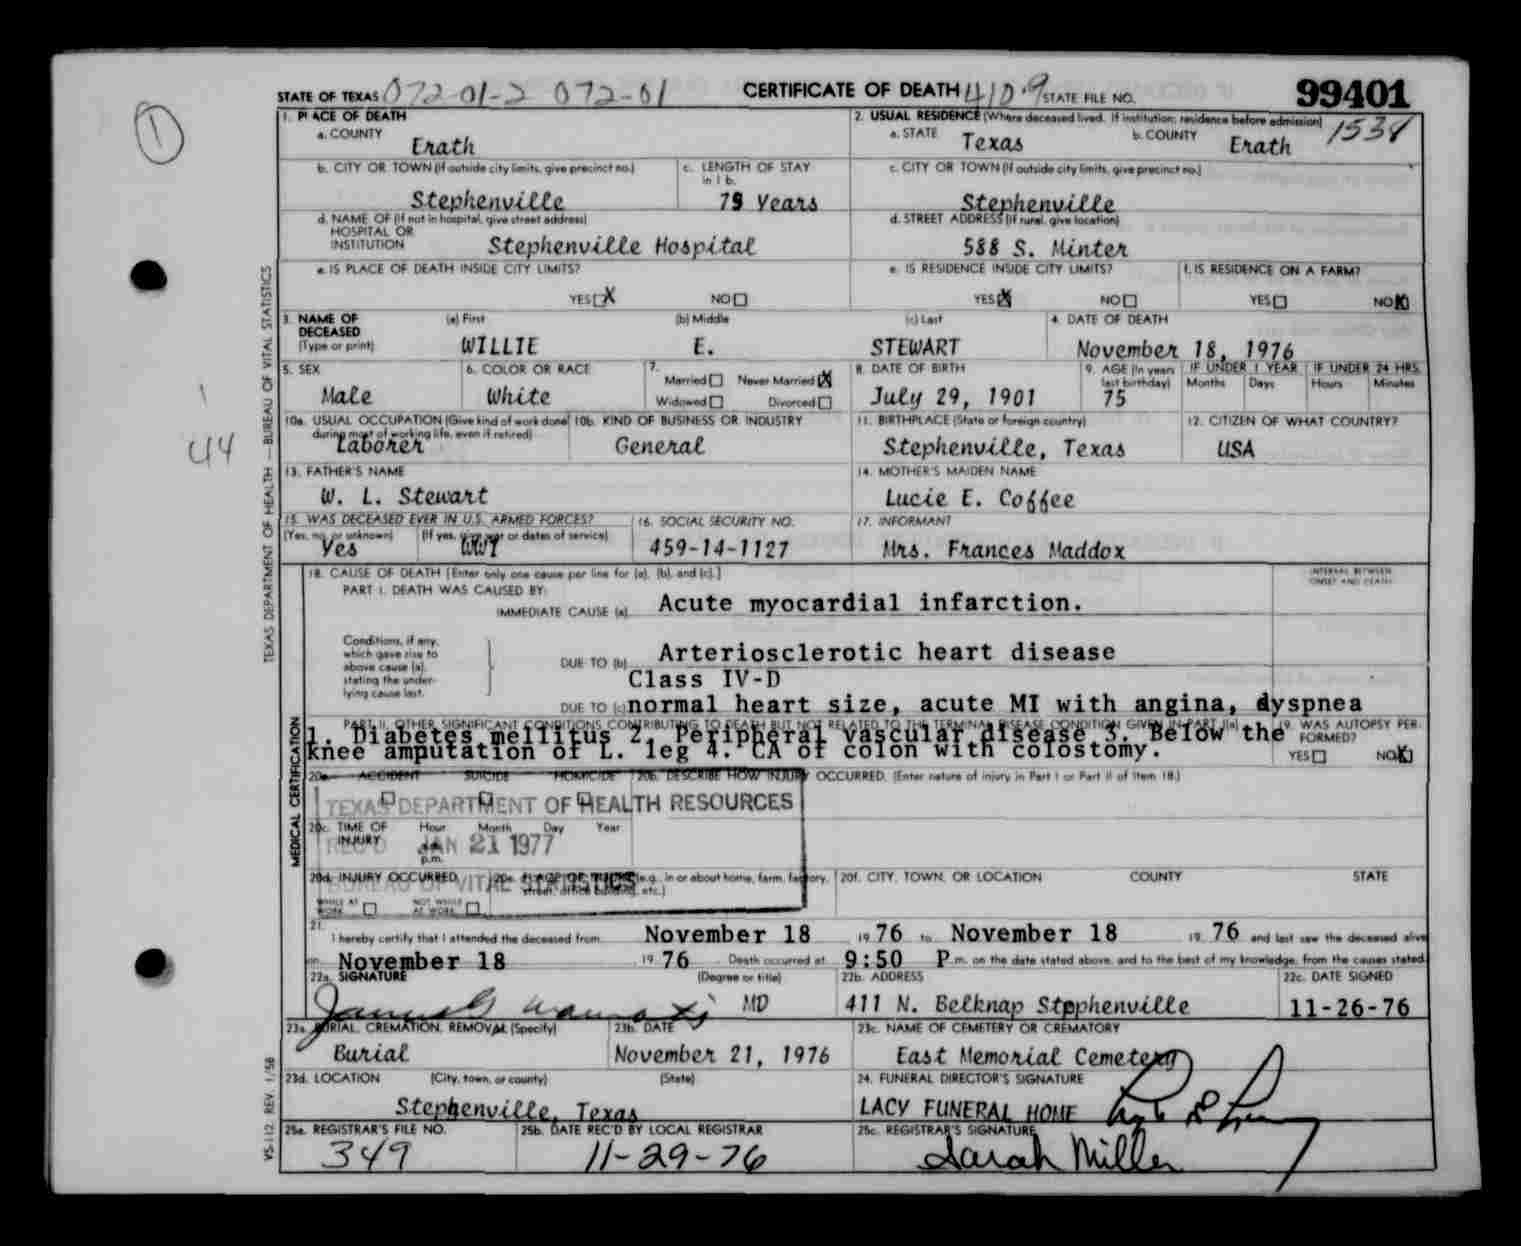 STATE OF TEXAS 072-01-2 072-01 CERTIFICATE OF DEATH 410.9 STATE FILE NO. 99401
1
1538
1. PLACE OF DEATH
a. COUNTY
Erath
2. USUAL RESIDENCE (Where deceased lived. If institution: residence before admission)
a. STATE Texas b. COUNTY Erath
b. CITY OR TOWN (If outside city limits, give precinct no.)
Stephenville
c. LENGTH OF STAY in 1 b.
Years
c. CITY OR TOWN (If outside city limits, give precinct no.)
Stephenville
d. NAME OF (If not in hospital, give street address)
HOSPITAL OR
INSTITUTION Stephenville Hospital
d. STREET ADDRESS (If rural, give location)
588 S. Minter
e. IS PLACE OF DEATH INSIDE CITY LIMITS?
YES X NO
e. IS RESIDENCE INSIDE CITY LIMITS?
YES X NO
f. IS RESIDENCE ON A FARM?
YES NO X
3. NAME OF
DECEASED
(Type or print)
(a) First
WILLIE
(b) Middle
E.
(c) Last
STEWART
4. DATE OF DEATH
November 18, 1976
5. SEX
Male
6. COLOR OR RACE
White
7.
Married Never Married X
Widowed Divorced
8. DATE OF BIRTH
July 29, 1901
9. AGE (In years
last birthday)
75
IF UNDER 1 YEAR
Months Days
IF UNDER 24 HRS.
Hours Minutes
10a. USUAL OCCUPATION (Give kind of work done
during most of working life, even if retired)
Laborer
10b. KIND OF BUSINESS OR INDUSTRY
General
11. BIRTHPLACE (State or foreign country)
Stephenville, Texas
12. CITIZEN OF WHAT COUNTRY?
USA
44
13. FATHER'S NAME
W. L. Stewart
14. MOTHER'S MAIDEN NAME
Lucie E. Coffee
15. WAS DECEASED EVER IN U.S. ARMED FORCES?
(Yes, no, or unknown) (If yes, give war or dates of service)
Yes
16. SOCIAL SECURITY NO.
459-14-1127
17. INFORMANT
Mrs. Frances Maddox
TEXAS DEPARTMENT OF HEALTH — BUREAU OF VITAL STATISTICS
MEDICAL CERTIFICATION
18. CAUSE OF DEATH [Enter only one cause per line for (a), (b), and (c).]
INTERVAL BETWEEN
ONSET AND DEATH
PART I. DEATH WAS CAUSED BY:
IMMEDIATE CAUSE (a) Acute myocardial infarction.
Conditions, if any,
which gave rise to
above cause (a),
stating the under-
lying cause last.
DUE TO (b) Arteriosclerotic heart disease
Class IV-D
DUE TO (c) normal heart size, acute MI with angina, dyspnea
PART II. OTHER SIGNIFICANT CONDITIONS CONTRIBUTING TO DEATH BUT NOT RELATED TO THE TERMINAL DISEASE CONDITION GIVEN IN PART I(a)
1. Diabetes mellitus 2. Peripheral vascular disease 3. Below the
knee amputation of L. leg 4. CA of colon with colostomy.
19. WAS AUTOPSY PER-
FORMED?
YES NO X
20a. ACCIDENT SUICIDE HOMICIDE
20b. DESCRIBE HOW INJURY OCCURRED. (Enter nature of injury in Part I or Part II of Item 18.)
TEXAS DEPARTMENT OF HEALTH RESOURCES
20c. TIME OF
INJURY
Hour Month Day Year
p.m.
REC'D JAN 21 1977
BUREAU OF VITAL STATISTICS
20d. INJURY OCCURRED
WHILE AT
WORK
NOT WHILE
AT WORK
20e. PLACE OF INJURY (e.g., in or about home, farm, factory,
street, office building, etc.)
20f. CITY, TOWN, OR LOCATION COUNTY STATE
21.
I hereby certify that I attended the deceased from November 18 1976 to November 18 1976 and last saw the deceased alive
on November 18 1976. Death occurred at 9:50 P.m. on the date stated above, and to the best of my knowledge, from the causes stated.
22a. SIGNATURE (Degree or title)
MD
22b. ADDRESS
411 N. Belknap Stephenville
22c. DATE SIGNED
11-26-76
23a. BURIAL, CREMATION, REMOVAL (Specify)
Burial
23b. DATE
November 21, 1976
23c. NAME OF CEMETERY OR CREMATORY
East Memorial Cemetery
23d. LOCATION (City, town, or county) (State)
Stephenville, Texas
24. FUNERAL DIRECTOR'S SIGNATURE
LACY FUNERAL HOME
25a. REGISTRAR'S FILE NO.
349
25b. DATE REC'D BY LOCAL REGISTRAR
11-29-76
25c. REGISTRAR'S SIGNATURE
Sarah Miller
VS-112 REV. 1/58